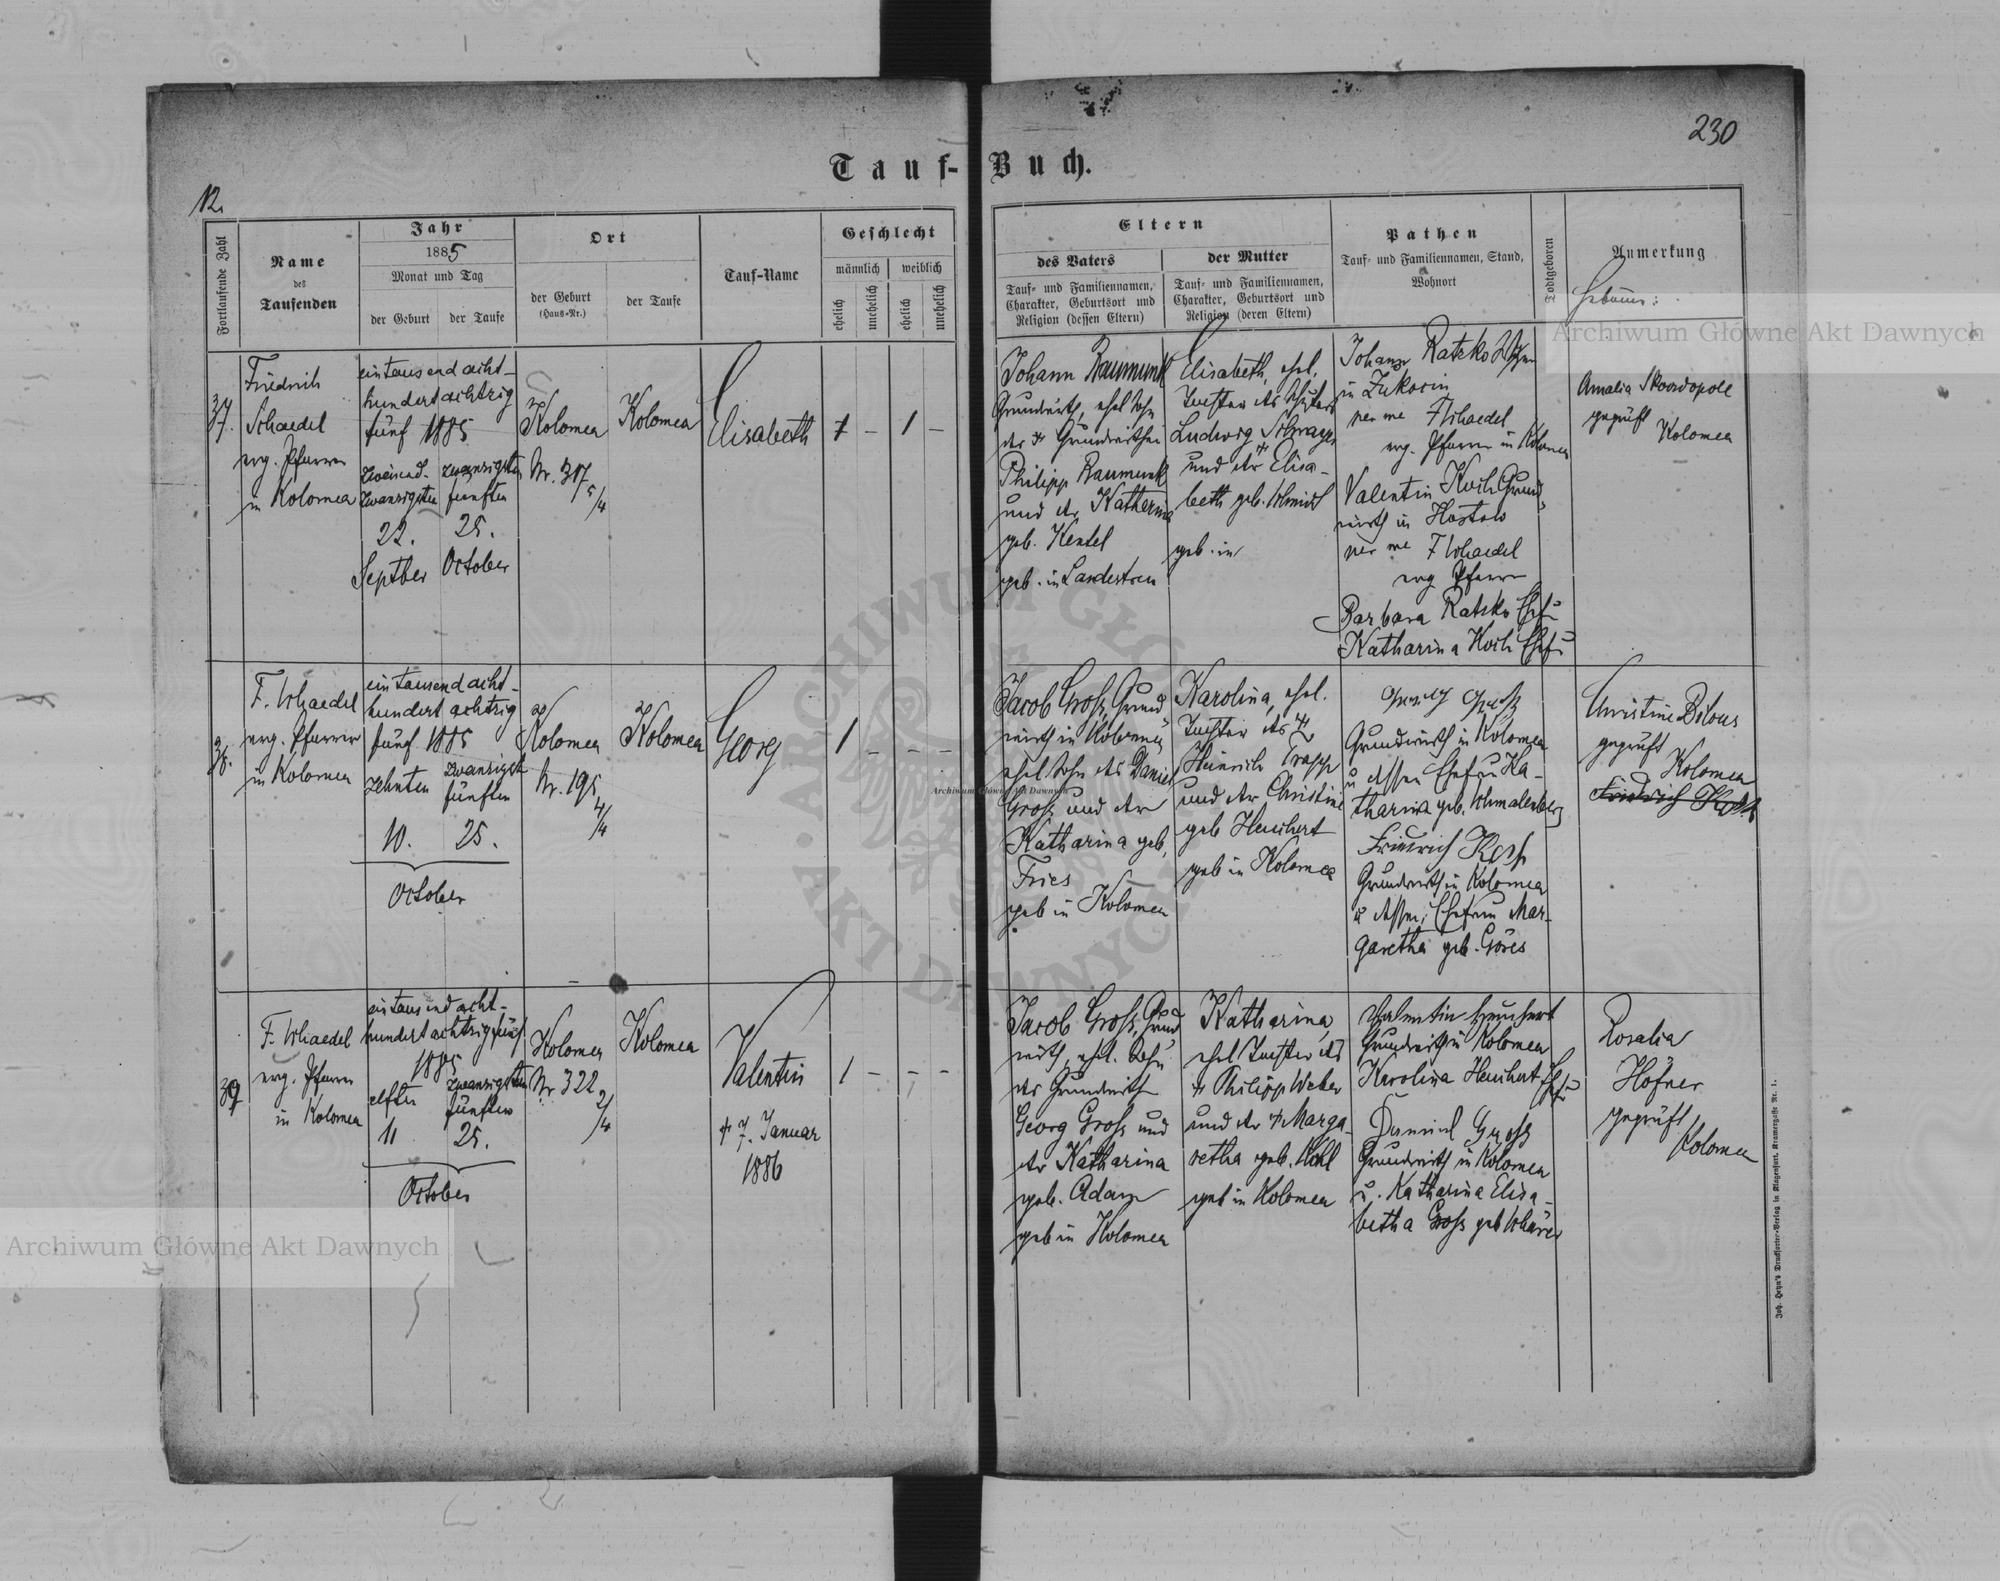 230
Tauf-Buch.
12.
Fortlaufende Zahl
Name
des
Taufenden
Jahr
1885
Monat und Tag
der Geburt
der Taufe
Ort
der Geburt
(Haus-Nr.)
der Taufe
Tauf-Name
Geschlecht
männlich
weiblich
ehelich
unehelich
ehelich
unehelich
Eltern
des Vaters
Tauf- und Familiennamen,
Charakter, Geburtsort und
Religion (dessen Eltern)
der Mutter
Tauf- und Familiennamen,
Charakter, Geburtsort und
Religion (deren Eltern)
Pathen
Tauf- und Familiennamen, Stand,
Wohnort
Todtgeboren
Anmerkung
37.
Friedrich
Schaedel
evg. Pfarrer
in Kolomea
ein tausend acht-
hundert achtzig
fünf 1885
zweiund-
zwanzigsten
22.
Septber
zwanzigsten
fünften
25.
October
Kolomea
Nr. 317
5/4
Kolomea
Elisabeth
1 – 1 –
Johann Raumunk
Grundwirth, ehel Sohn
des † Grundwirthen
Philipp Raumunk
und der Katharina
geb. Kentel
geb. in Landestreu
Elisabeth, ehel.
Tochter des
Ludwig
und der † Elisa-
beth geb. Schmidt
geb. in
Johann Ratzko
in Zukocin
per me F Schaedel
evg. Pfarrer in Kolomea
Valentin Koch Grund-
wirth in
per me F Schaedel
evg Pfarrer
Barbara Ratzko Ehefr
Katharina Koch Ehefr
Amalia Skowdopole
geprüft
Kolomea
38.
F. Schaedel
evg. Pfarrer
in Kolomea
ein tausend acht-
hundert achtzig
fünf 1885
zehnten
10.
zwanzigst
fünften
25.
October
Kolomea
Nr. 195
4/4
Kolomea
Georg
1 – – –
Jacob Groß, Grund
wirth in Kolomea
ehel Sohn des Daniel
Groß und der
Katharina geb.
Fries
geb in Kolomea
Karolina, ehel.
Tochter des †
Heinrich Trapp
und der Christine
geb Heuchert
geb in Kolomea
Grundwirth in Kolomea
u dessen Ehefrau Ka-
tharina geb. Schmalenberg
Friedrich
Grundwirth in Kolomea
u dessen Ehefrau Mar-
garetha geb. Göres
Christine Bilous
geprüft
Kolomea
39
F. Schaedel
evg. Pfarrer
in Kolomea
ein tausend acht-
hundert achtzig fünf
1885
elften
11
zwanzigsten
fünften
25.
October
Kolomea
Nr. 322
2/4
Kolomea
Valentin
† 7. Januar
1886
1 – – –
Jacob Groß, Grund
wirth, ehel. Sohn
des Grundwirth
Georg Groß und
der Katharina
geb. Adam
geb in Kolomea
Katharina,
ehel Tochter des
† Philipp Weber
und der † Marga-
retha geb. Kohl
geb in Kolomea
Valentin Heuchert
Grundwirth in Kolomea
Karolina Heuchert Ehefr
Daniel Groß
Grundwirth in Kolomea
u. Katharina Elisa-
betha Groß geb
Rosalia
Höfner
geprüft
Kolomea
Joh. Heyn's Drucksorten-Verlag in Klagenfurt, Kramergasse Nr. 1.
Archiwum Główne Akt Dawnych
Archiwum Główne Akt Dawnych
Archiwum Główne Akt Dawnych